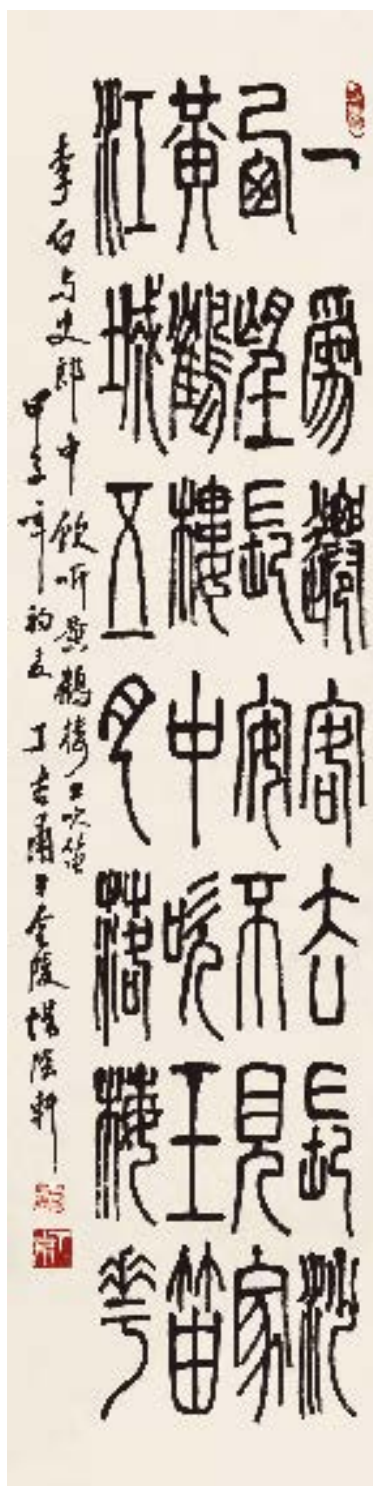 一為遷客去長沙
西望長安不見家
黃鶴樓中吹玉笛
江城五月落梅花
李白与史郎中飲听黃鶴樓上吹笛
甲子年初夏丁吉甫于金陵惜陰軒